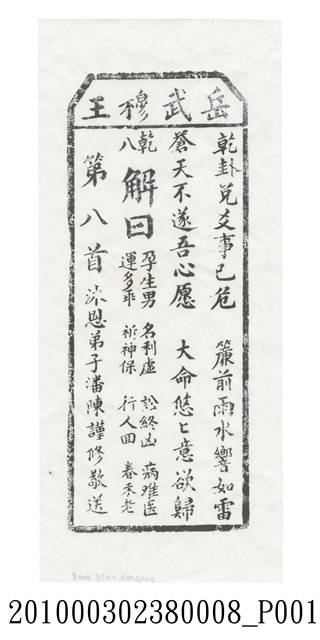 岳武穆王
乾卦兌爻事已危 簾前雨水響如雷
蒼天不遂吾心愿 大命悠匕意欲歸
乾八
解曰
孕生男 名利虛 訟終凶 病难医
運多乖 祈神保 行人回 春禾老
第八首 沐恩弟子潘陳謹修敬送
201000302380008_P001